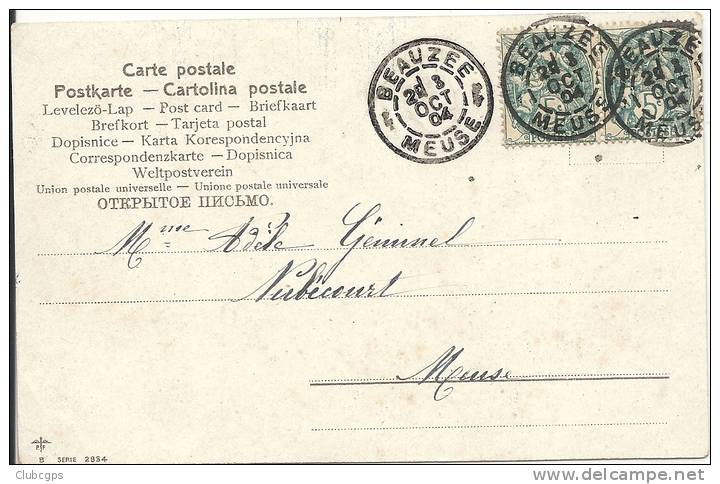 Carte postale
Postkarte — Cartolina postale
Levelezö-Lap — Post card — Briefkaart
Brefkort — Tarjeta postal
Dopisnice — Karta Korespondencyjna
Correspondenzkarte — Dopisnica
Weltpostverein
Union postale universelle — Unione postale universale
ОТКРЫТОЕ ПИСЬМО.
BEAUZEE
OCT
04
MEUSE
BEAUZEE
OCT
04
MEUSE
BEAUZEE
OCT
04
MEUSE
Mme Adèle
Nubécourt
Meuse
PF
B SERIE 2834
Clubcgps
www.delcampe.net